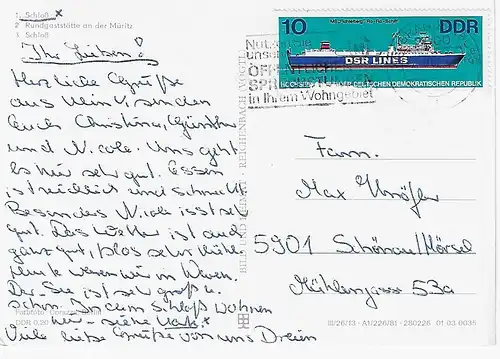 1. Schloß x
2. Rundgaststätte an der Müritz
3. Schloß
Ihr Lieben!
Herzliche Grüße
aus Klink senden
Euch Christina, Günther
und Nicole. Uns geht
es hier sehr gut. Essen
ist reichlich und schmeckt.
Besonders Nicole isst sehr
gut. Das Wetter ist auch
ganz gut, blos sehr kühl.
Heute waren wir in Waren.
Der See ist sehr groß u.
schön. In dem Schloß wohnen
wir – siehe Karte x
Viele liebe Grüße von uns Dreien
DDR 0,20
BILD UND HEIMAT REICHENBACH (VOGTL)
Nutzen Sie
unsere
ÖFFENTLICHEN
SPRECHSTUNDEN
in Ihrem Wohngebiet
10
DDR
DSR LINES
DEUTSCHEN DEMOKRATISCHEN REPUBLIK
Fam.
Max
5901 Schönau/Hörsel
Mühlengasse 53a
III/26/13 · A1/226/81 · 280226 01 03 0035